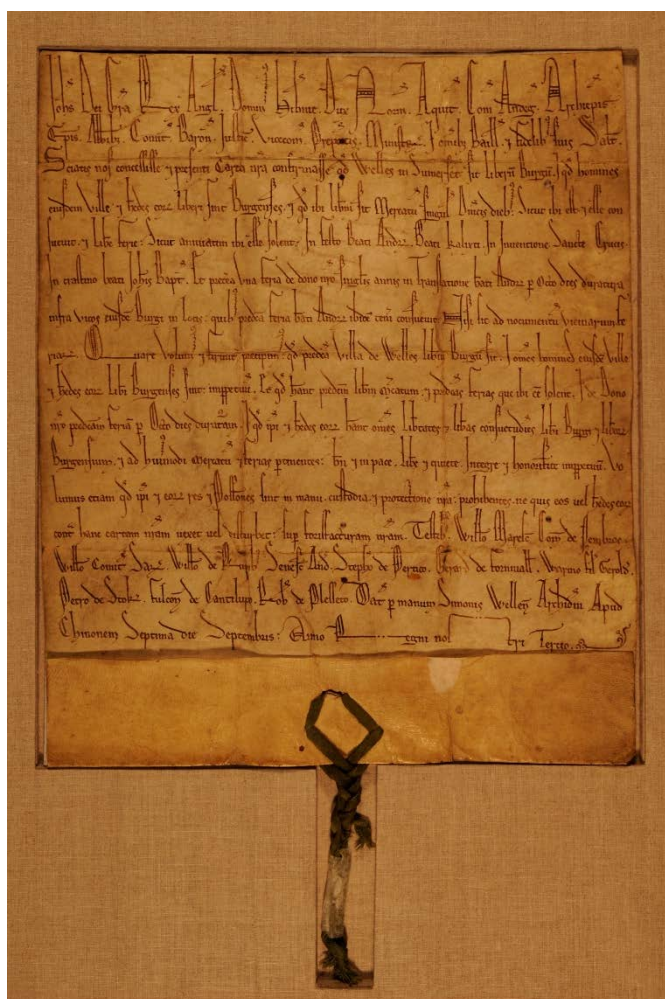 Johs Dei Gra Rex Angl. Dominus Hibnie. Dux Norm. Aquit. Com Andeg. Archiepis
Epis. Abbibz Comit. Baron. Justic. Vicecom. Prepositis. Ministr. I omibz Baill. I fidelibz suis Saltm.
Sciatis nos concessisse I presenti Carta nra confirmasse qd Welles in Sumerset sit liberum Burgum. I qd homines
eiusdem Ville I hedes eorz liberi sint Burgenses. I qd ibi libum sit Mercatu singul Dnicis diebz. Sicut ibi est I esse con
suevit. I libe ferie. Sicut annuatim ibi esse solent. In festo Beati Andr. Beati Kalixti. In Inventione Sancte Crucis
In crastino beati Johis Bapt. Et pretea Una feria de dono nro singlis annis in Translatione bati Andr p Octo dies duratura
infra vicos eiusde Burgi in locis: quibz predca feria bati Andr ibide teni consuevit Nisi sit ad nocumentu vicinarum fe
riar. Quare Volum I firmit precipim: qd predca Villa de Welles libu Burgu sit. I omes homines eiusde Ville
I hedes eorz libi Burgenses sint: imppetuu. Et qd hant predcm libm Mcatum. I predcas ferias que ibi ee solent. I de Dono
nro predcam feriam p Octo dies duraturam. I qd ipi I hedes eorz hant omes libtates I libas consuetudies libi Burgi I liberorz
Burgensium. I ad huiusmodi Mercatu I ferias ptinentes: bn I in pace. libe I quiete. Integre I honorifice imppetuum. Vo
lumus etiam qd ipi I eorz res I possessiones sint in manu. custodia. I protectione nra: prohibentes. ne quis eos vel hedes eorz
cont hanc cartam nram vexet vel disturbet: sup forisfacturam nram. Testibz. Willo Maresc. Com de Penbroc.
Willo Comit Sarz. Willo de Rupibz Senesc And. Stepho de Pertico. Gerard de fornivall. Warino fil Geroldi.
Petro de Stok. fulcon de Cantilupo. Rob de Plesseto. Dat p manum Simonis Wellen Archidiac. Apud
Chinonem Septima die Septembris: Anno Regni nostri Tertio.